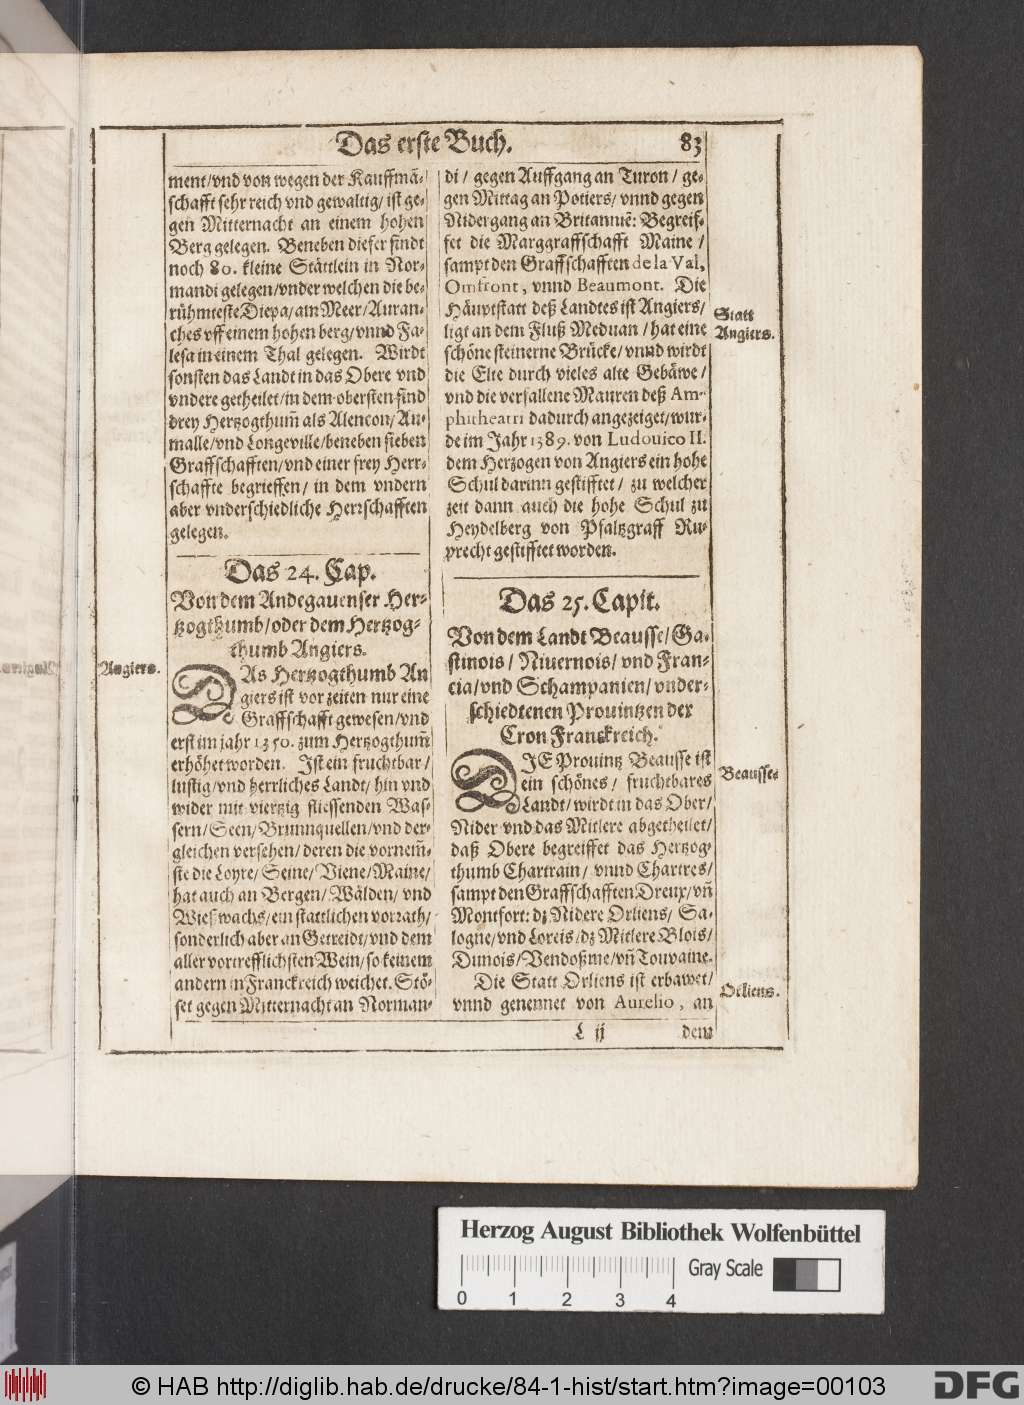 Das erste Buch. 83
ment/vnd von wegen der Kauffmā-
schafft sehr reich vnd gewaltig/ ist ge-
gen Mitternacht an einem hohen
Berg gelegen. Beneben dieser findt
noch 80. kleine Stättlein in Nor-
mandi gelegen/vnder welchen die be-
rühmteste Diepa/am Meer/Auran-
ches vff einem hohen berg/vnnd Fa-
lesa in einem Thal gelegen. Wirdt
sonsten das Landt in das Obere vnd
vndere getheilet/in dem obersten sind
drey Hertzogthum̄ als Alencon/Au-
malle/vnd Longeville/beneben sieben
Graffschafften/vnd einer frey Herr-
schaffte begrieffen/ in dem vndern
aber vnderschiedliche Herrschafften
gelegen.
Das 24. Cap.
Von dem Andegauenser Her-
tzogthumb/oder dem Hertzog-
thumb Angiers.
Angiers.
DAs Hertzogthumb An
giers ist vor zeiten nur eine
Graffschafft gewesen/vnd
erst im jahr 1350. zum Hertzogthum̄
erhöhet worden. Ist ein fruchtbar/
lustig/vnd herrliches Landt/ hin vnd
wider mit viertzig fliessenden Was-
sern/Seen/Brunnquellen/vnd der-
gleichen versehen/deren die vornem̄-
ste die Loyre/Seine/Viene/Maine/
hat auch an Bergen/Wälden/vnd
Wießwachs/ein stattlichen vorrath/
sonderlich aber an Getreidt/vnd dem
aller vortrefflichsten Wein/so keinem
andern in Franckreich weichet. Stö-
set gegen Mitternacht an Norman-
di/ gegen Auffgang an Turon/ ge-
gen Mittag an Potiers/ vnnd gegen
Nidergang an Britannie͂: Begreif-
fet die Marggraffschafft Maine/
sampt den Graffschafften de la Val,
Omfront, vnnd Beaumont. Die
Häuptstatt deß Landtes ist Angiers/
ligt an dem Fluß Meduan/hat eine
schöne steinerne Brücke/vnnd wirdt
die Elte durch vieles alte Gebäwe/
vnd die verfallene Mauren deß Am-
phitheatri dadurch angezeiget/wur-
de im Jahr 1389. von Ludouico II.
dem Hertzogen von Angiers ein hohe
Schul darinn gestifftet/ zu welcher
zeit dann auch die hohe Schul zu
Heydelberg von Pfaltzgraff Ru-
precht gestifftet worden.
Statt
Angiers.
Das 25. Capit.
Von dem Landt Beausse/Ga-
stinois/ Niuernois/ vnd Fran-
cia/vnd Schampanien/ vnder-
schiedtenen Prouintzen der
Cron Franckreich.
DIE Prouintz Beausse ist
ein schönes/ fruchtbares
Landt/wirdt in das Ober/
Nider vnd das Mitlere abgetheilet/
daß Obere begreiffet das Hertzog-
thumb Chartrain/ vnnd Chartres/
sampt den Graffschafften Dreux/vn̄
Montfort: dz Nidere Orliens/ Sa-
logne/vnd Loreis/dz Mitlere Blois/
Dunois/Vendoßme/vn̄ Touvaine.
Die Statt Orliens ist erbawet/
vnnd genennet von Aurelio, an
Beausse.
Orliens.
L ij dem
Herzog August Bibliothek Wolfenbüttel
Gray Scale
0 1 2 3 4
© HAB http://diglib.hab.de/drucke/84-1-hist/start.htm?image=00103
DFG